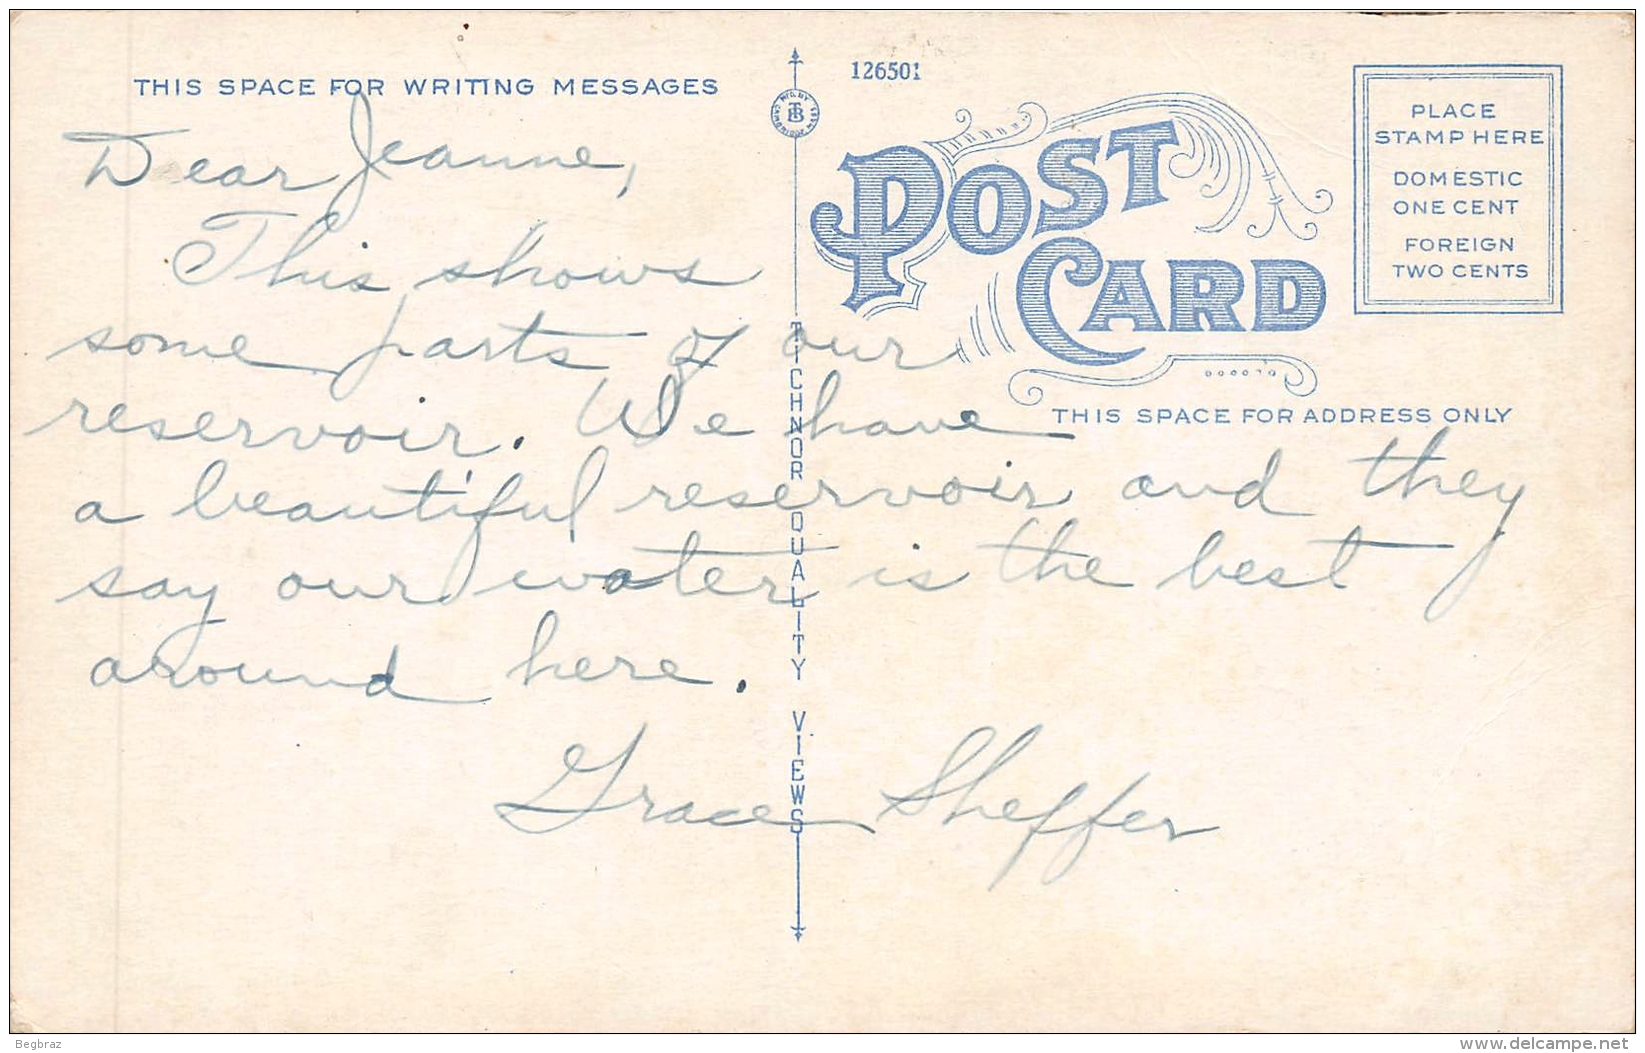 THIS SPACE FOR WRITING MESSAGES
126501
POST CARD
PLACE
STAMP HERE
DOMESTIC
ONE CENT
FOREIGN
TWO CENTS
THIS SPACE FOR ADDRESS ONLY
TICHNOR QUALITY VIEWS
Dear Jeanne,
This shows
some parts of our
reservoir. We have
a beautiful reservoir and they
say our water is the best
around here.
Grace Sheffer
Begbraz
delcampe.net